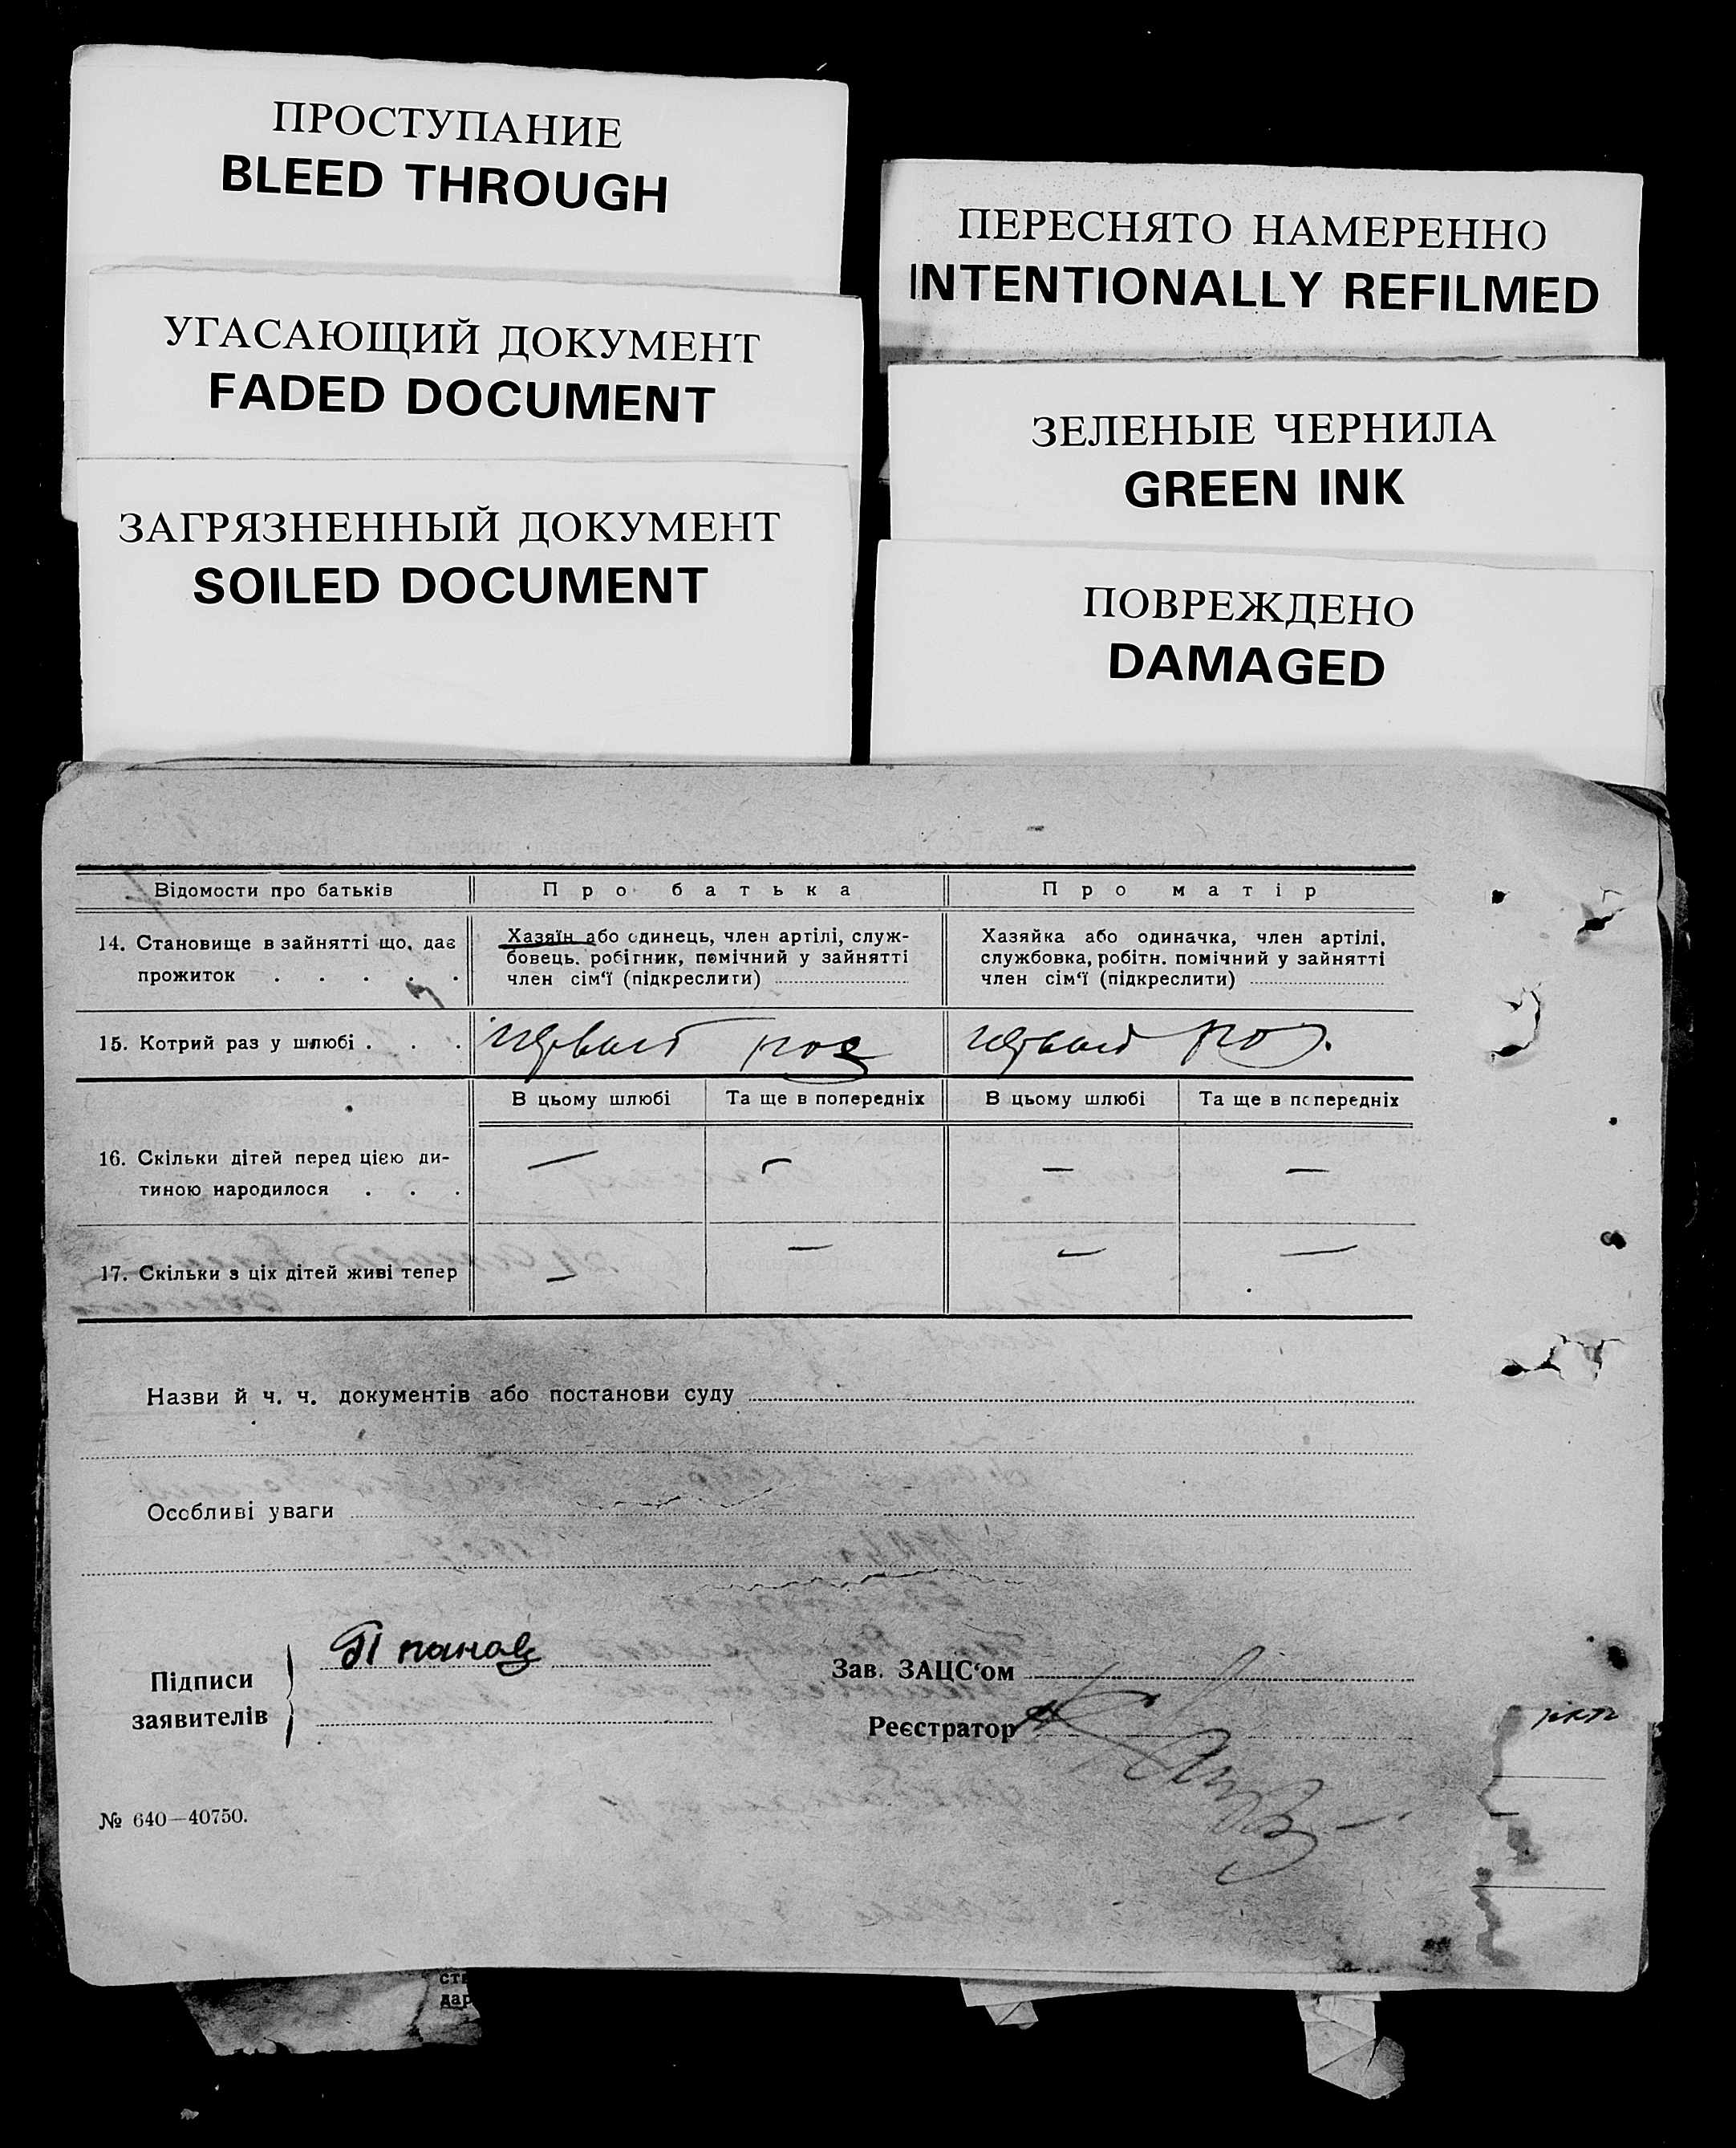 ПРОСТУПАНИЕ
BLEED THROUGH
УГАСАЮЩИЙ ДОКУМЕНТ
FADED DOCUMENT
ЗАГРЯЗНЕННЫЙ ДОКУМЕНТ
SOILED DOCUMENT
ПЕРЕСНЯТО НАМЕРЕННО
INTENTIONALLY REFILMED
ЗЕЛЕНЫЕ ЧЕРНИЛА
GREEN INK
ПОВРЕЖДЕНО
DAMAGED
Відомости про батьків
Про батька
Про матір
14. Становище в зайнятті що, дає
прожиток . . . . .
Хазяїн або одинець, член артілі, служ-
бовець. робітник, помічний у зайнятті
член сім‘ї (підкреслити)
Хазяйка або одиначка, член артілі,
службовка, робітн. помічний у зайнятті
член сім‘ї (підкреслити)
15. Котрий раз у шлюбі . . .
первый раз
первый раз.
В цьому шлюбі
Та ще в попередніх
В цьому шлюбі
Та ще в попередніх
16. Скільки дітей перед цією ди-
тиною народилося . . .
— — — —
17. Скільки з ціх дітей живі тепер
— — — —
Назви й ч. ч. документів або постанови суду
Особливі уваги
Підписи
заявителів
Зав. ЗАЦС‘ом
Реєстратор
№ 640—40750.